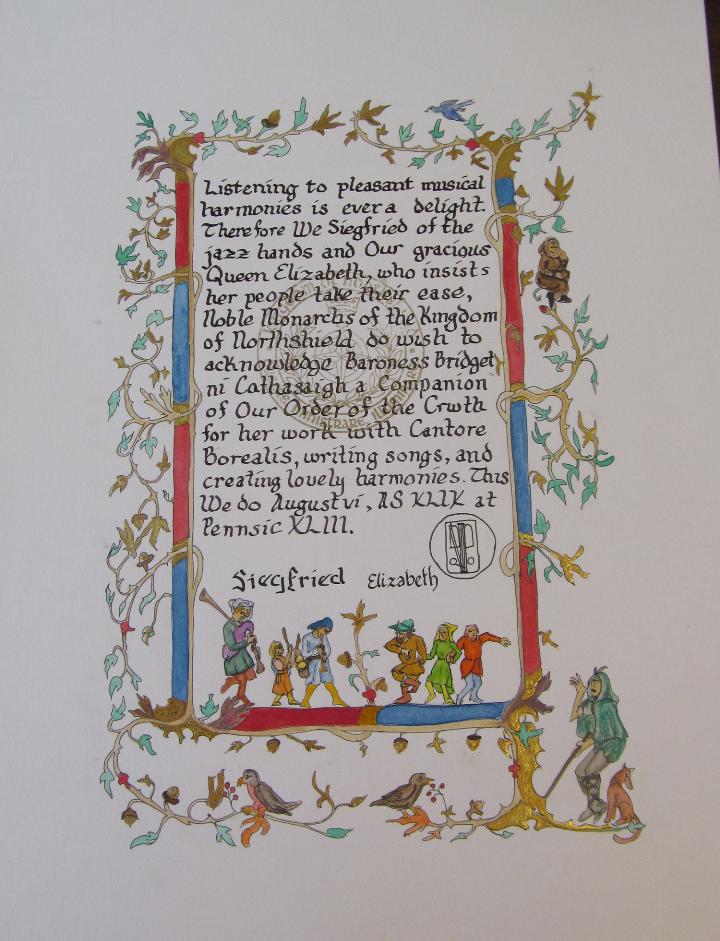 Listening to pleasant musical
harmonies is ever a delight.
Therefore We Siegfried of the
jazz hands and Our gracious
Queen Elizabeth, who insists
her people take their ease,
Noble Monarchs of the Kingdom
of Northshield do wish to
acknowledge Baroness Bridget
ni Cathasaigh a Companion
of Our Order of the Crwth
for her work with Cantore
Borealis, writing songs, and
creating lovely harmonies. This
We do August vi, AS XLIX at
Pennsic XLIII.
Siegfried Elizabeth